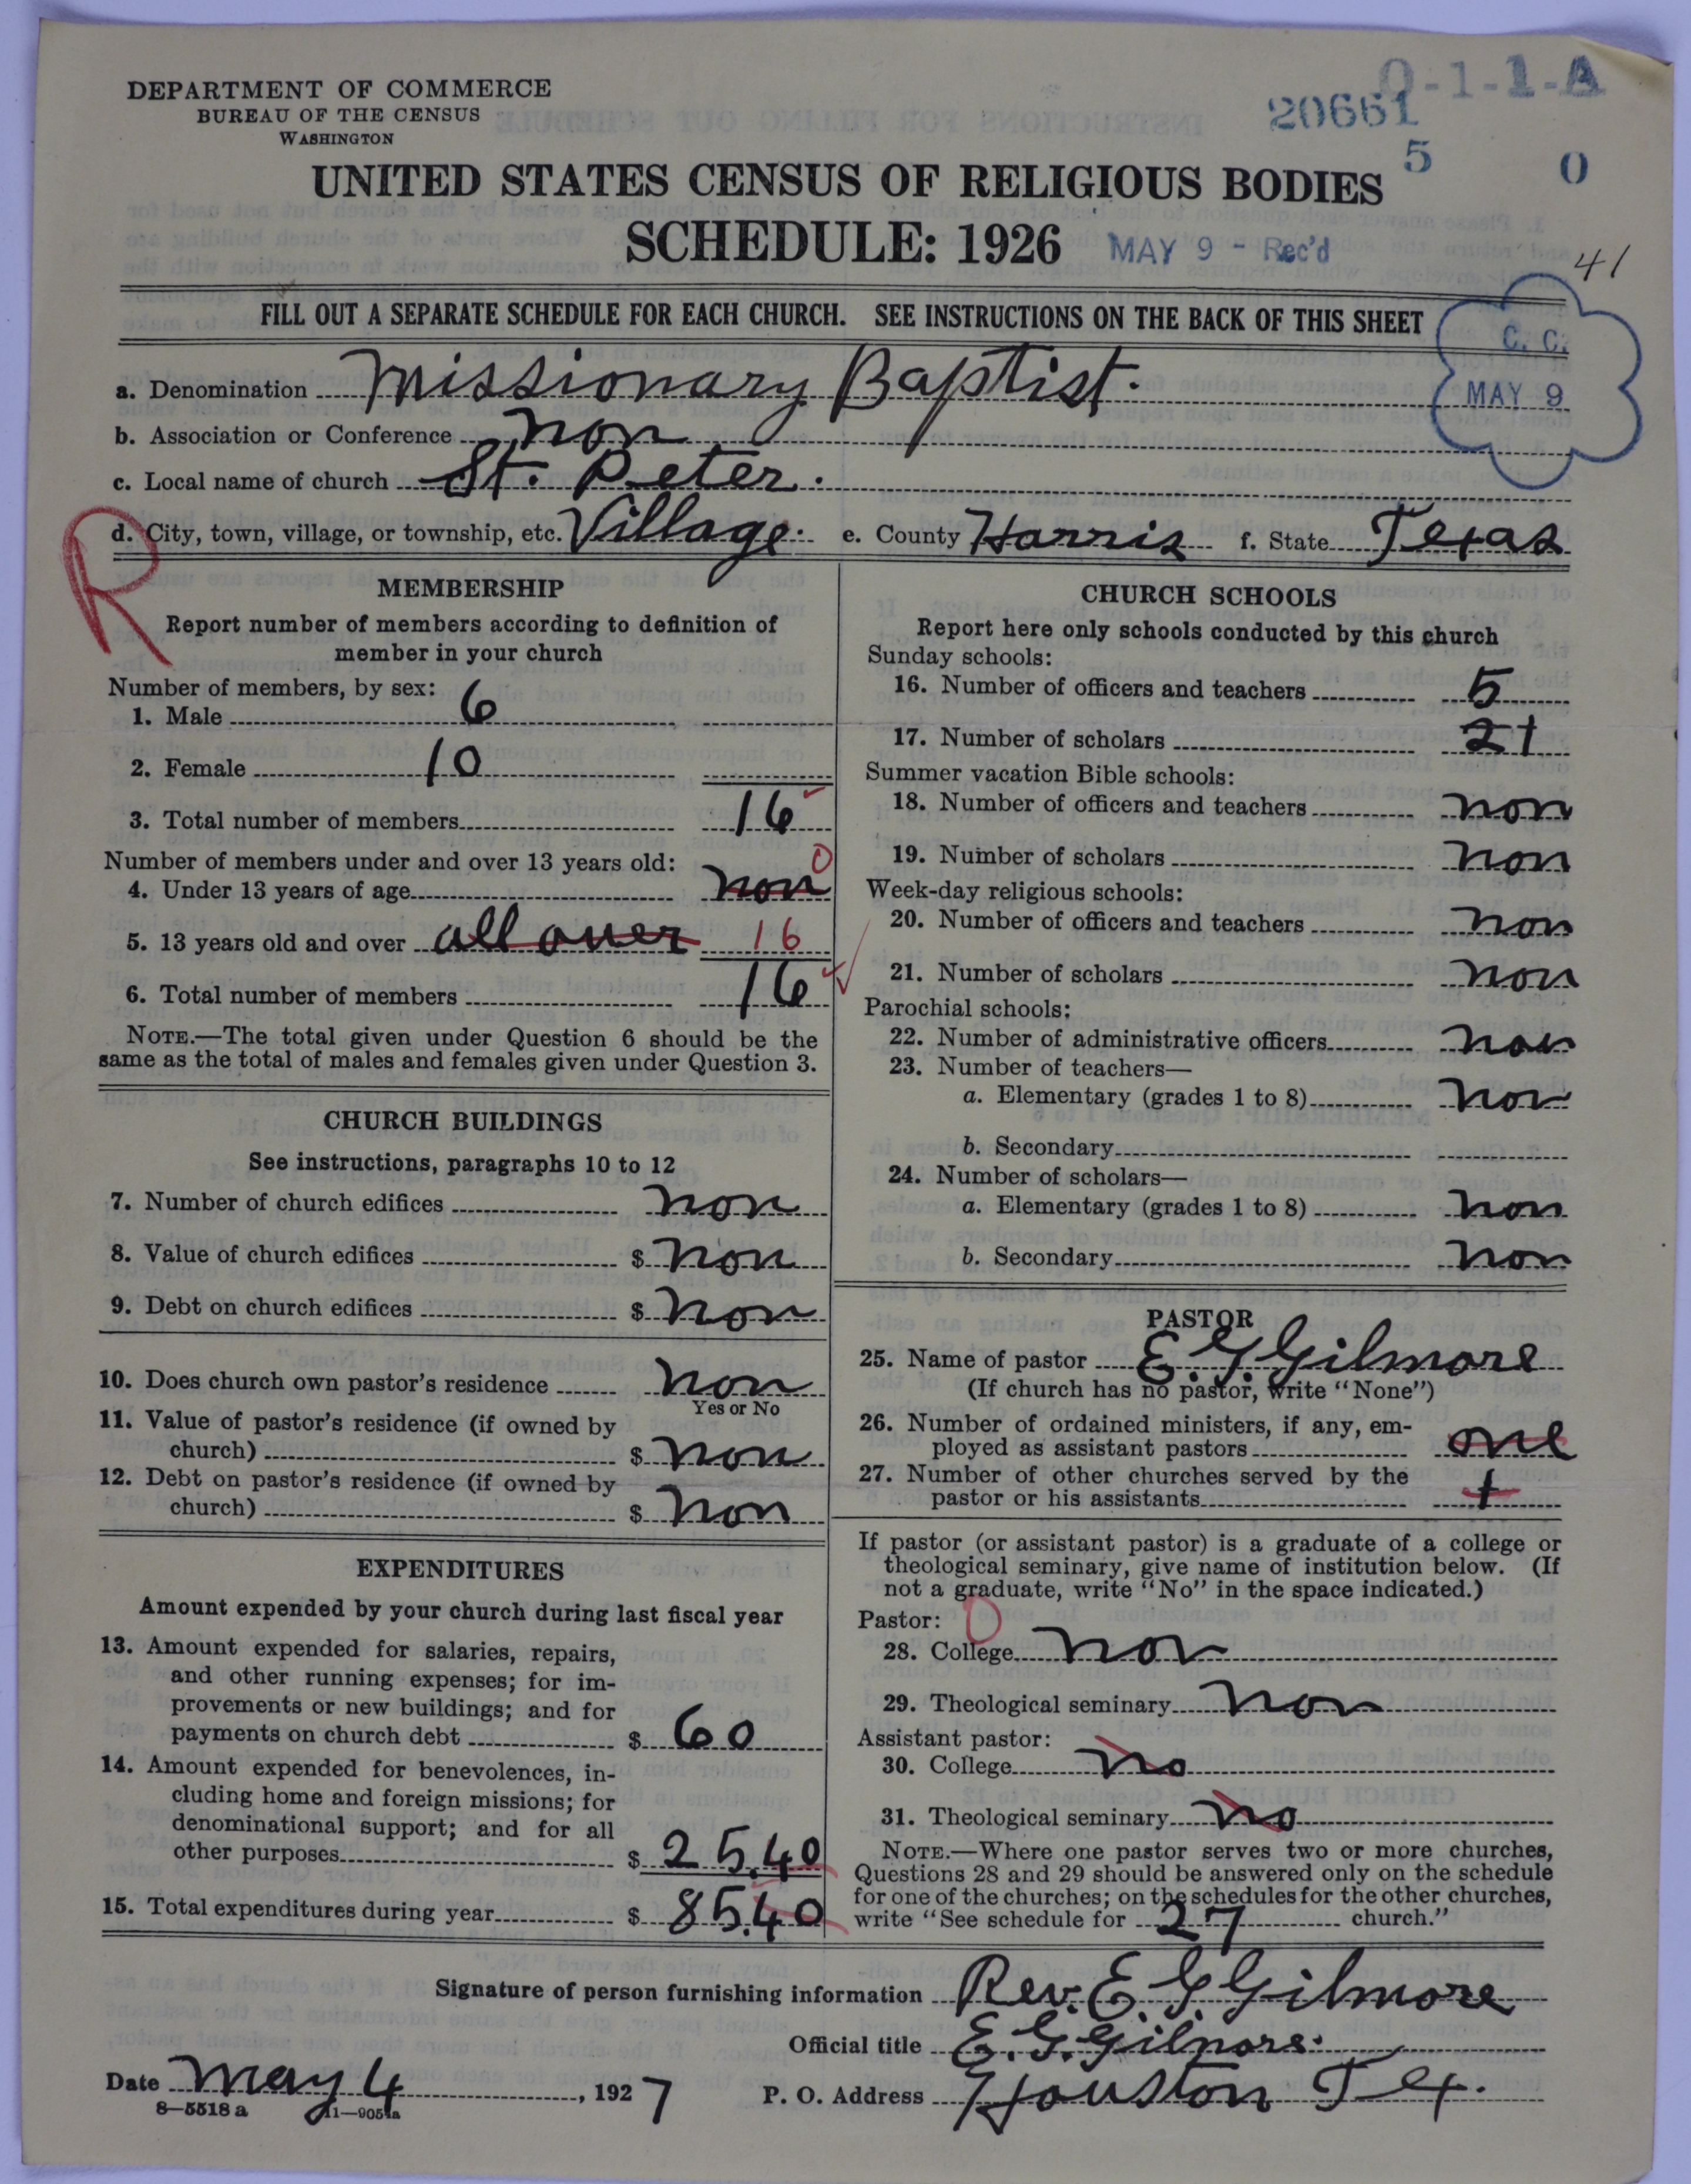 DEPARTMENT OF COMMERCE
BUREAU OF THE CENSUS
WASHINGTON
0-1-1-A
20661
5 0
UNITED STATES CENSUS OF RELIGIOUS BODIES
SCHEDULE: 1926 MAY 9 - Rec'd
41
FILL OUT A SEPARATE SCHEDULE FOR EACH CHURCH. SEE INSTRUCTIONS ON THE BACK OF THIS SHEET
C. C.
MAY 9
a. Denomination Missionary Baptist.
b. Association or Conference non
c. Local name of church St. Peter.
R
d. City, town, village, or township, etc. Village. e. County Harris f. State Texas
MEMBERSHIP
Report number of members according to definition of
member in your church
Number of members, by sex:
1. Male 6
2. Female 10
3. Total number of members 16
Number of members under and over 13 years old:
4. Under 13 years of age non 0
5. 13 years old and over all over 16
6. Total number of members 16
NOTE.—The total given under Question 6 should be the
same as the total of males and females given under Question 3.
CHURCH BUILDINGS
See instructions, paragraphs 10 to 12
7. Number of church edifices non
8. Value of church edifices $ non
9. Debt on church edifices $ non
10. Does church own pastor's residence non
Yes or No
11. Value of pastor's residence (if owned by
church) $ non
12. Debt on pastor's residence (if owned by
church) $ non
EXPENDITURES
Amount expended by your church during last fiscal year
13. Amount expended for salaries, repairs,
and other running expenses; for im-
provements or new buildings; and for
payments on church debt $ 60
14. Amount expended for benevolences, in-
cluding home and foreign missions; for
denominational support; and for all
other purposes $ 25.40
15. Total expenditures during year $ 85.40
CHURCH SCHOOLS
Report here only schools conducted by this church
Sunday schools:
16. Number of officers and teachers 5
17. Number of scholars 21
Summer vacation Bible schools:
18. Number of officers and teachers non
19. Number of scholars non
Week-day religious schools:
20. Number of officers and teachers non
21. Number of scholars non
Parochial schools:
22. Number of administrative officers non
23. Number of teachers—
a. Elementary (grades 1 to 8) non
b. Secondary
24. Number of scholars—
a. Elementary (grades 1 to 8) non
b. Secondary non
PASTOR
25. Name of pastor E. G. Gilmore
(If church has no pastor, write "None")
26. Number of ordained ministers, if any, em-
ployed as assistant pastors one
27. Number of other churches served by the
pastor or his assistants 1
If pastor (or assistant pastor) is a graduate of a college or
theological seminary, give name of institution below. (If
not a graduate, write "No" in the space indicated.)
Pastor: 0
28. College non
29. Theological seminary non
Assistant pastor:
30. College no
31. Theological seminary no
NOTE.—Where one pastor serves two or more churches,
Questions 28 and 29 should be answered only on the schedule
for one of the churches; on the schedules for the other churches,
write "See schedule for 27 church."
Signature of person furnishing information Rev. E. G. Gilmore
Official title E. G. Gilmore.
Date May 4, 1927 P. O. Address Houston Tex.
8—5518 a 11—9051a